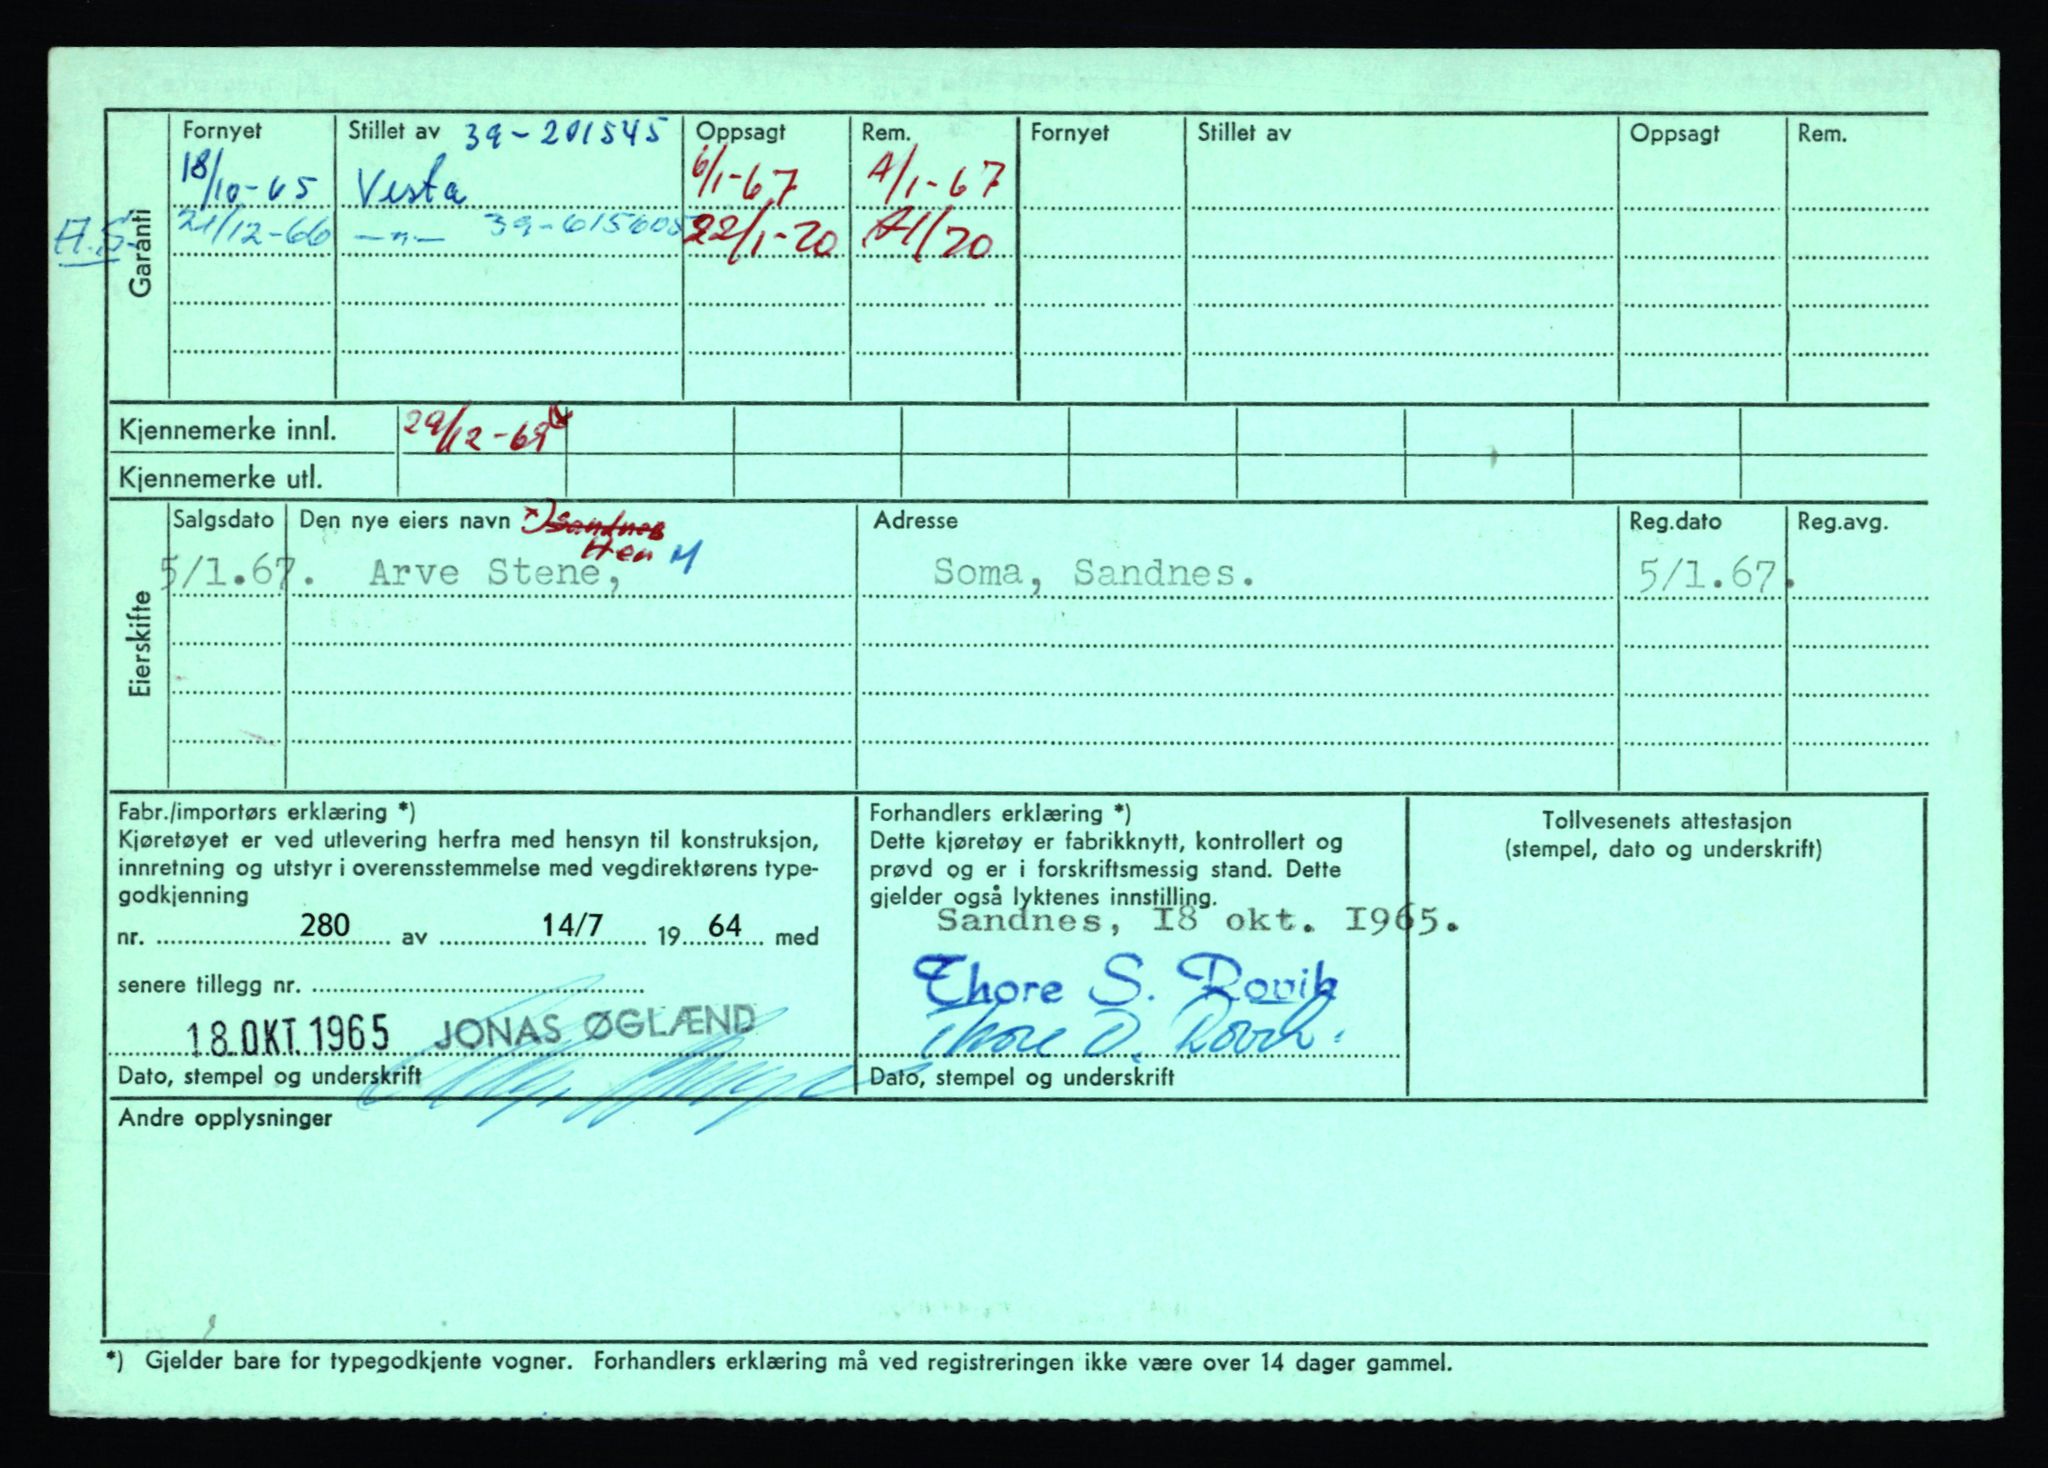 Fornyet Stillet av 39-201545 Oppsagt Rem. Fornyet Stillet av Oppsagt Rem.
18/10-65 Vesta 6/1-67 A/1-67
H.S. 21/12-66 —"— 39-615605 22/1-70 A1/70
Garanti
Kjennemerke innl. 29/12-69
Kjennemerke utl.
Salgsdato Den nye eiers navn x) Sandnes Adresse Reg.dato Reg.avg.
5/1.67. Arve Stene, Soma, Sandnes. 5/1.67.
Eierskifte
Fabr./importørs erklæring *)
Kjøretøyet er ved utlevering herfra med hensyn til konstruksjon,
innretning og utstyr i overensstemmelse med vegdirektørens type-
godkjenning
nr. 280 av 14/7 19 64 med
senere tillegg nr.
18.OKT.1965 JONAS ØGLÆND
Dato, stempel og underskrift
Forhandlers erklæring *)
Dette kjøretøy er fabrikknytt, kontrollert og
prøvd og er i forskriftsmessig stand. Dette
gjelder også lyktenes innstilling.
Sandnes, I8 okt. I965.
Thore S. Rovik
Thore S. Rovik
Dato, stempel og underskrift
Tollvesenets attestasjon
(stempel, dato og underskrift)
Andre opplysninger
*) Gjelder bare for typegodkjente vogner. Forhandlers erklæring må ved registreringen ikke være over 14 dager gammel.